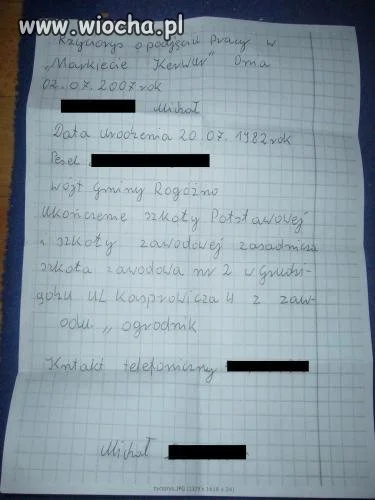 www.wiocha.pl
Rzyciorys o podjęciu Pracy w
„Markiecie Kerwur" Dma
02.07.2007 rok
Michał
Data urodzenia 20.07.1982 rok
Pesel
wójt Gminy Rogóźno
Ukończenie szkoły Potstawowej
i szkoły zawodowej zasadnicza
szkoła zawodowa nr 2 w Grudzi-
ądzu UL Kasprowicza 4 z zaw-
odu „ ogrodnik
Kntakt telefoniczny
Michał
życiorys.JPG (1229 x 1638 x 24)